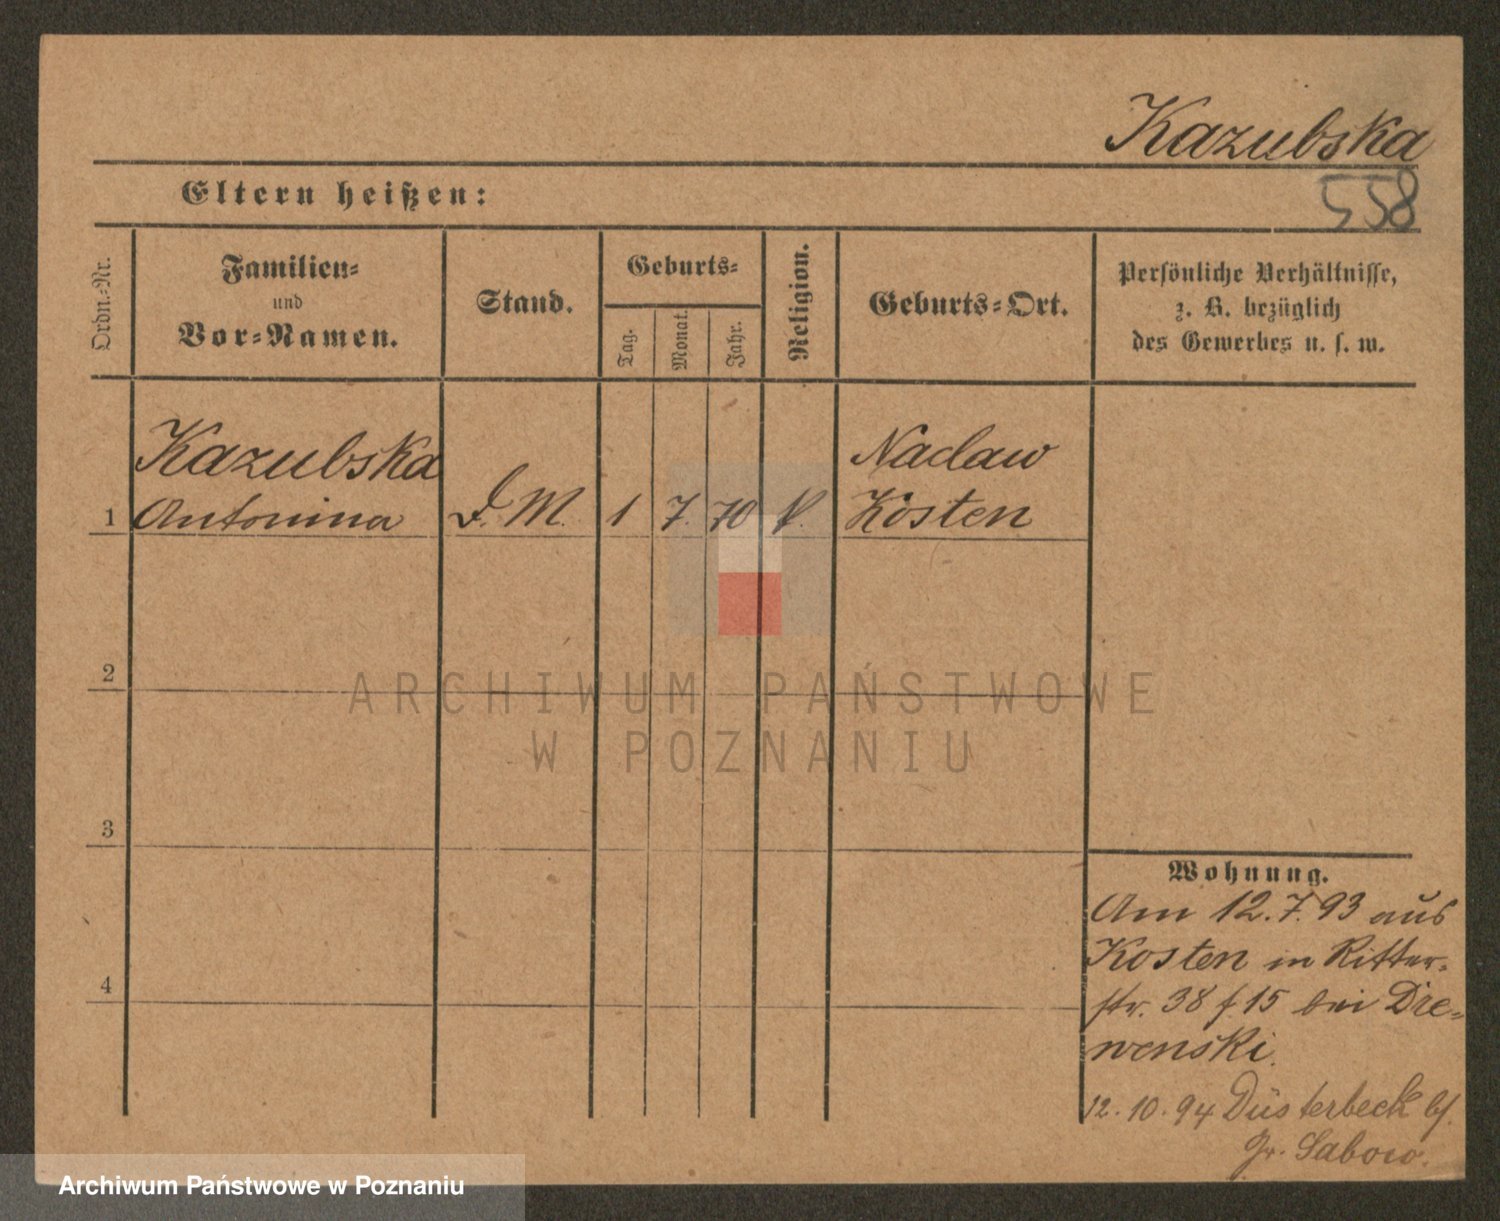 Kazubska
558
Eltern heißen:
Ordn.-Nr.
Familien-
und
Vor-Namen.
Stand.
Geburts-
Tag.
Monat.
Jahr.
Religion.
Geburts-Ort.
Persönliche Verhältnisse,
z. B. bezüglich
des Gewerbes u. s. w.
Kazubska
Naclaw
1 Antonina D. M. 1 7. 70 k. Kosten
2
ARCHIWUM PAŃSTWOWE
W POZNANIU
3
4
Wohnung.
Am 12.7.93 aus
Kosten in Ritter-
str. 38 f. 15 bei Dre-
wenski.
12.10.94 Düsterbeck
Gr. Sabow.
Archiwum Państwowe w Poznaniu